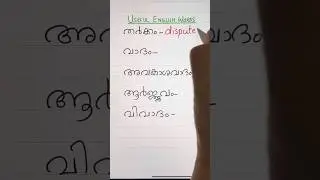 USEFUL ENGLISH WORDS
തർക്കം- dispute
വാദം-
അവകാശവാദം-
ആർജ്ജവം-
വിവാദം-